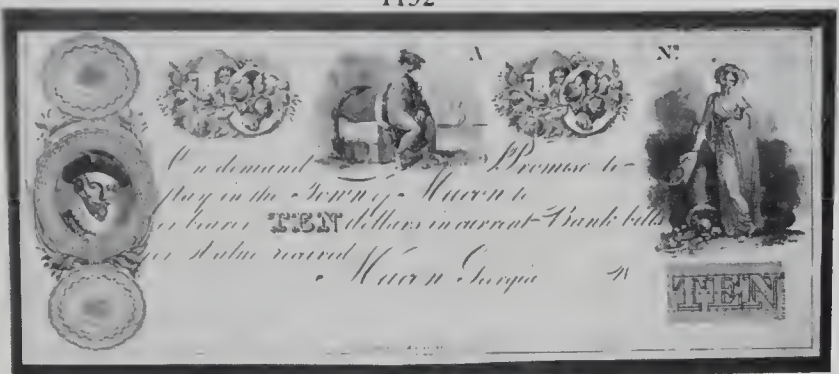 1132
A Nº
On demand Promise to
pay in the Town of Macon to
or bearer TEN dollars in current Bank bills
for value received
Macon Georgia
TEN